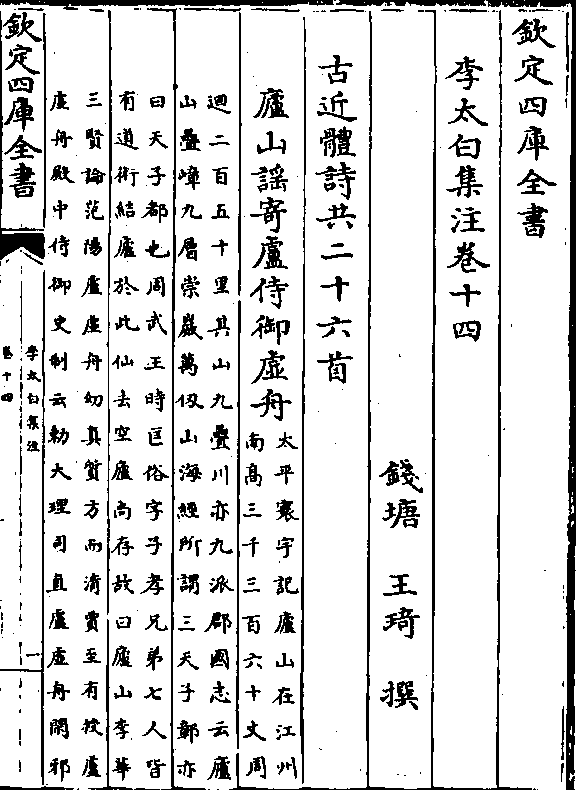 欽定四庫全書
李太白集注卷十四
錢塘 王琦 撰
古近體詩共二十六首
廬山謠寄盧侍御虛舟
太平寰宇記廬山在江州
南高三千三百六十丈周
迴二百五十里其山九疊川亦九派郡國志云廬
山疊嶂九層崇巖萬仭山海經所謂三天子鄣亦
曰天子都也周武王時匡俗字子孝兄弟七人皆
有道術結廬於此仙去空廬尚存故曰廬山李華
三賢論范陽盧虛舟幼真質方而清賈至有授盧
虛舟殿中侍御史制云勅大理司直盧虛舟閑邪
欽定四庫全書
李太白集注
卷十四
一